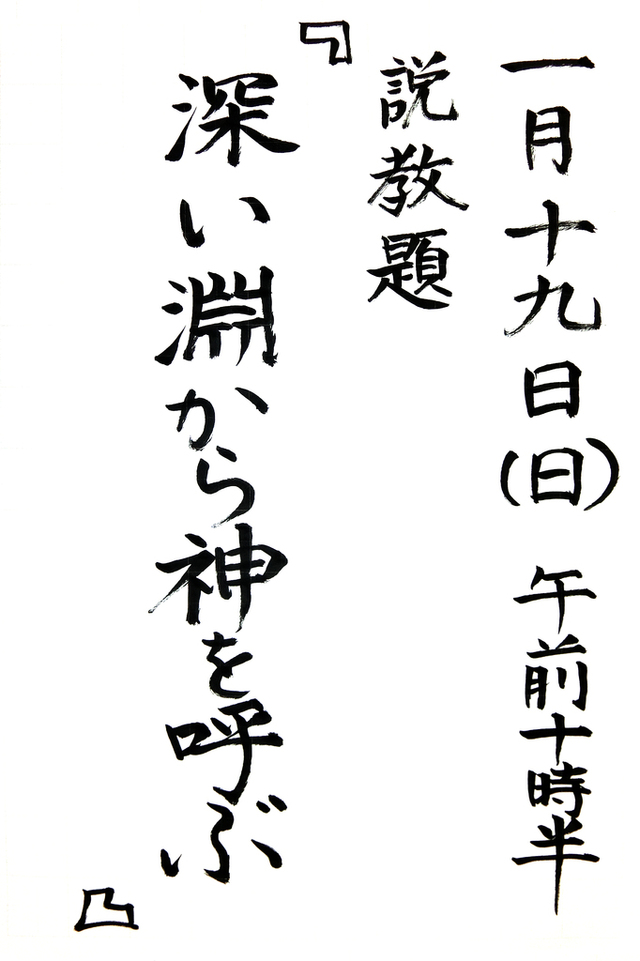 一月十九日(日) 午前十時半
説教題
『深い淵から神を呼ぶ』